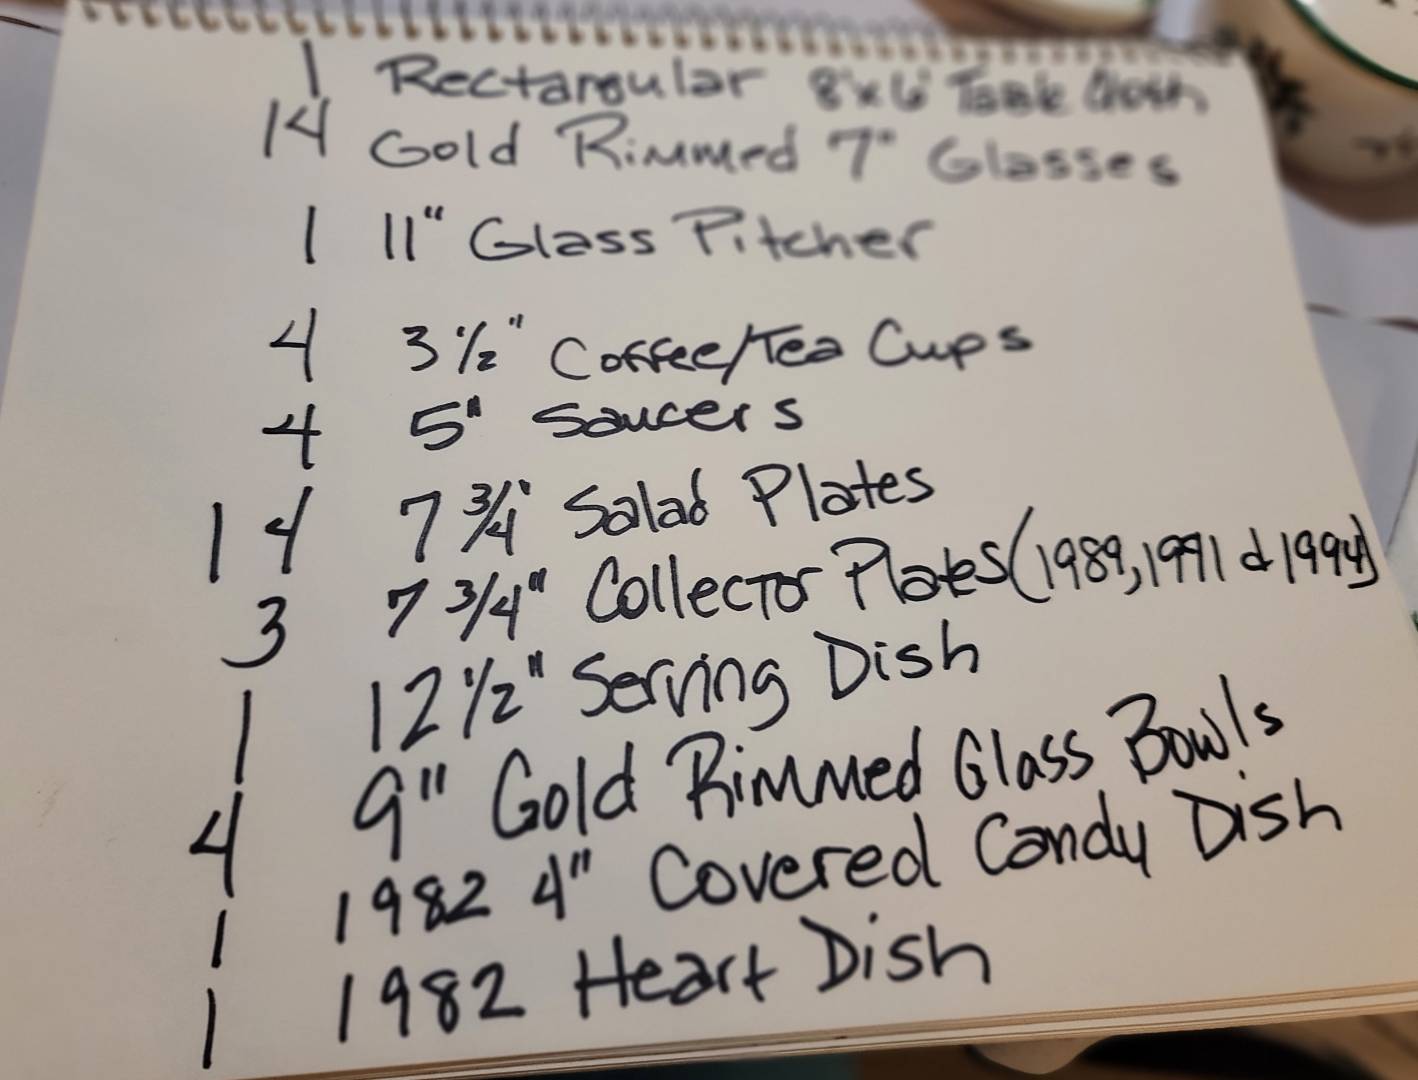 1 Rectangular 8'x6' Table Cloth
14 Gold Rimmed 7" Glasses
1 11" Glass Pitcher
4 3 1/2" Coffee/Tea Cups
4 5" Saucers
14 7 3/4" Salad Plates
3 7 3/4" Collector Plates (1989, 1991 & 1994)
1 12 1/2" Serving Dish
4 9" Gold Rimmed Glass Bowls
1 1982 4" Covered Candy Dish
1 1982 Heart Dish